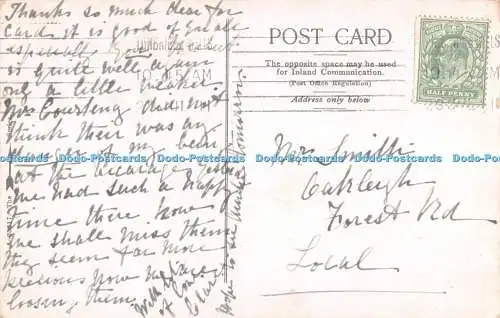 Thanks so much dear for
Card, it is good of you all
especially
is quite well again
only a little weaker.
Mrs Courteng did not
think there was any
danger of my being
at the
we had such a happy
time there how
we shall miss them
they seem far more
precious now we are
loosing them.
With
of love
Clar
Hope to see
tomorrow.
10.15 AM
POST CARD.
The opposite space may be used
for Inland Communication.
(Post Office Regulation)
Address only below
HALF PENNY
Mrs Smith
Oakleigh
Forest Rd
Local
Dodo-Postcards Dodo-Postcards Dodo-Postcards Dodo-Postcards Dodo-Postcards Dodo-Postcards